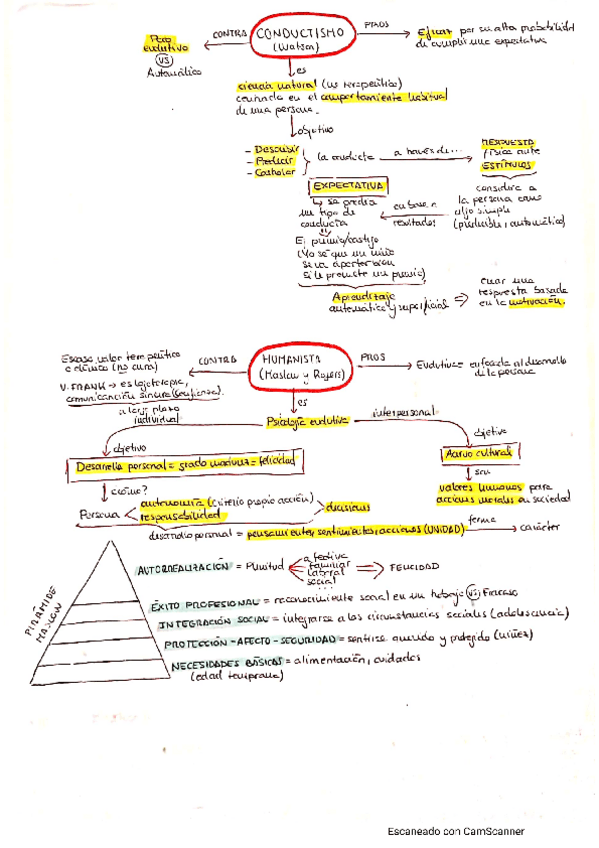 CONDUCTISMO
(Watson)
CONTRA
Poco
evolutivo
VS
Automático
PROS
Eficaz por su alta probabilidad
de cumplir una expectativa
es
ciencia natural (no terapéutica)
centrada en el comportamiento habitual
de una persona.
objetivo
- Describir
- Predecir
- Controlar
la conducta
a través de...
RESPUESTA
física ante
ESTÍMULOS
considera a
la persona como
algo simple
(predecible y automático)
en base a
resultados
EXPECTATIVA
se predice
un tipo de
conducta
Ej premio/castigo
(Yo sé que un niño
se va a portar bien
si le promete un premio)
Aprendizaje
automático y superficial
crear una
respuesta basada
en la motivación.
HUMANISTA
(Maslow y Rogers)
CONTRA
Escaso valor terapéutico
o clínico (no cura)
V. FRANK → es logoterapia,
comunicación sincera (confianza).
PROS
Evolutiva = enfocada al desarrollo
de la persona
es
Psicología evolutiva
a largo plazo
individual
interpersonal
objetivo
Desarrollo personal = grado madurez = felicidad
objetivo
Acervo cultural
son
valores humanos para
acciones morales en sociedad
¿cómo?
Persona
autonomía (criterio propio acción)
responsabilidad
decisiones
desarrollo personal = pensamientos, sentimientos, acciones (UNIDAD)
forma
carácter
PIRÁMIDE
MASLOW
AUTORREALIZACIÓN = Plenitud
afectiva
familiar
laboral
social
FELICIDAD
ÉXITO PROFESIONAL = reconocimiento social en un trabajo VS Fracaso
INTEGRACIÓN SOCIAL = integrarse a las circunstancias sociales (adolescencia)
PROTECCIÓN - AFECTO - SEGURIDAD = sentirse querido y protegido (niñez)
NECESIDADES BÁSICAS = alimentación, cuidados
(edad temprana)
Escaneado con CamScanner